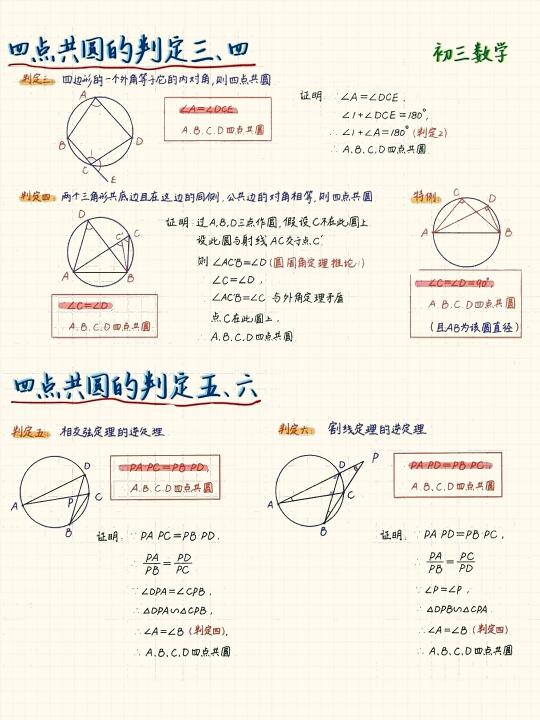 四点共圆的判定三、四
初三数学
判定三: 四边形的一个外角等于它的内对角,则四点共圆
A
B
D
C
1
E
∠A=∠DCE
∴ A、B、C、D四点共圆
证明: ∵∠A=∠DCE,
∠1+∠DCE=180°,
∴∠1+∠A=180°(判定2)
∴ A、B、C、D四点共圆.
判定四: 两个三角形共底边且在这边的同侧,公共边的对角相等,则四点共圆
D
C'
C
A
B
∠C=∠D
∴ A、B、C、D四点共圆
证明: 过A、B、D三点作圆,假设C不在此圆上
设此圆与射线AC交于点C'
则∠AC'B=∠D(圆周角定理推论1)
∵∠C=∠D,
∴∠AC'B=∠C 与外角定理矛盾
∴点C在此圆上,
∴ A、B、C、D四点共圆
特例:
C
D
A
B
∠C=∠D=90°
∴ A、B、C、D四点共圆
(且AB为该圆直径)
四点共圆的判定五、六
判定五: 相交弦定理的逆定理
D
A
P
C
B
PA·PC=PB·PD,
∴ A、B、C、D四点共圆
证明: ∵ PA·PC=PB·PD,
∴ PA/PB=PD/PC
∵∠DPA=∠CPB,
∴△DPA∽△CPB,
∴∠A=∠B(判定四),
∴ A、B、C、D四点共圆
判定六: 割线定理的逆定理
P
D
A
C
B
PA·PD=PB·PC,
∴ A、B、C、D四点共圆
证明: ∵ PA·PD=PB·PC,
∴ PA/PB=PC/PD
∵∠P=∠P,
∴△DPB∽△CPA
∴∠A=∠B(判定四)
∴ A、B、C、D四点共圆